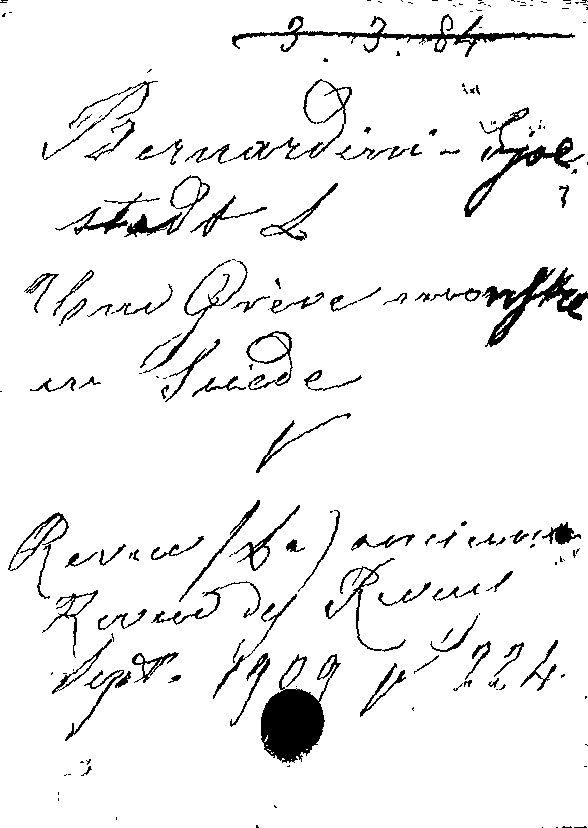 3. 3. 84
Bernardini - Sjoe
stedt L
Une Grève monstre
en Suède
Revue (La) ancienne
Revue des Revues
Sept. 1909 p 224.